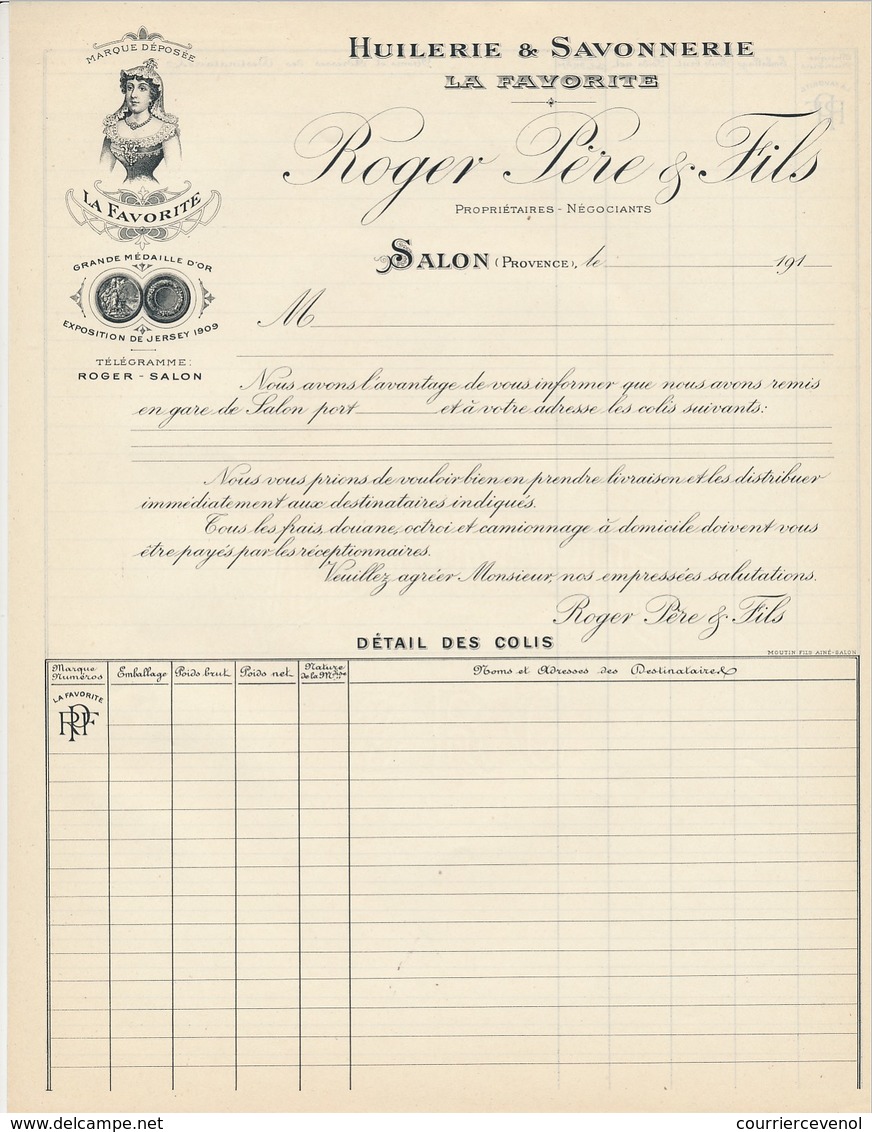 MARQUE DÉPOSÉE
LA FAVORITE
GRANDE MÉDAILLE D'OR
EXPOSITION DE JERSEY 1909
TÉLÉGRAMME:
ROGER - SALON
HUILERIE & SAVONNERIE
LA FAVORITE
Roger Père & Fils
PROPRIÉTAIRES - NÉGOCIANTS
SALON (PROVENCE), le 191
M
Nous avons l'avantage de vous informer que nous avons remis
en gare de Salon port et à votre adresse les colis suivants:
Nous vous prions de vouloir bien en prendre livraison et les distribuer
immédiatement aux destinataires indiqués.
Tous les frais, douane, octroi et camionnage à domicile doivent vous
être payés par les réceptionnaires.
Veuillez agréer Monsieur, nos empressées salutations.
Roger Père & Fils
DÉTAIL DES COLIS
MOUTIN FILS AINÉ-SALON
Marque Numéros Emballage Poids brut Poids net Nature de la Mdise Noms et Adresses des Destinataires
LA FAVORITE
RPF
courriercevenol